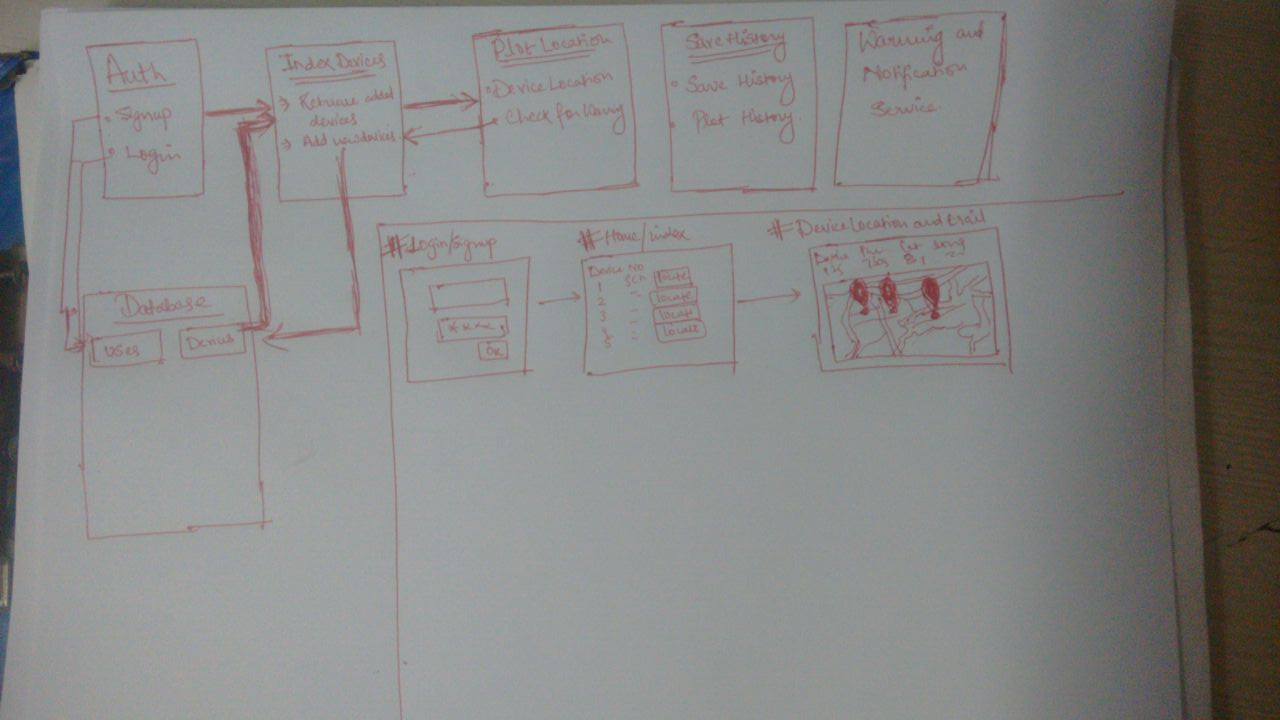 Auth
Signup
Login
Index Devices
Retrieve added
devices
Add new devices
Plot Location
Device Location
Check for
Save History
Save History
Plot History
Warning and
Notification
Service
Database
Users
#Login/Signup
****
OK
#Home/index
Device No
1
locate
2
locate
3
locate
4
locate
5
#Device Location and
Device